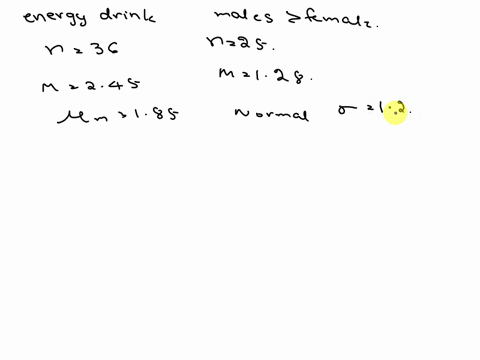 energy drink males > female.
n = 36 n = 25.
M = 2.45 M = 1.28.
μm = 1.85 Normal σ = 1.2.